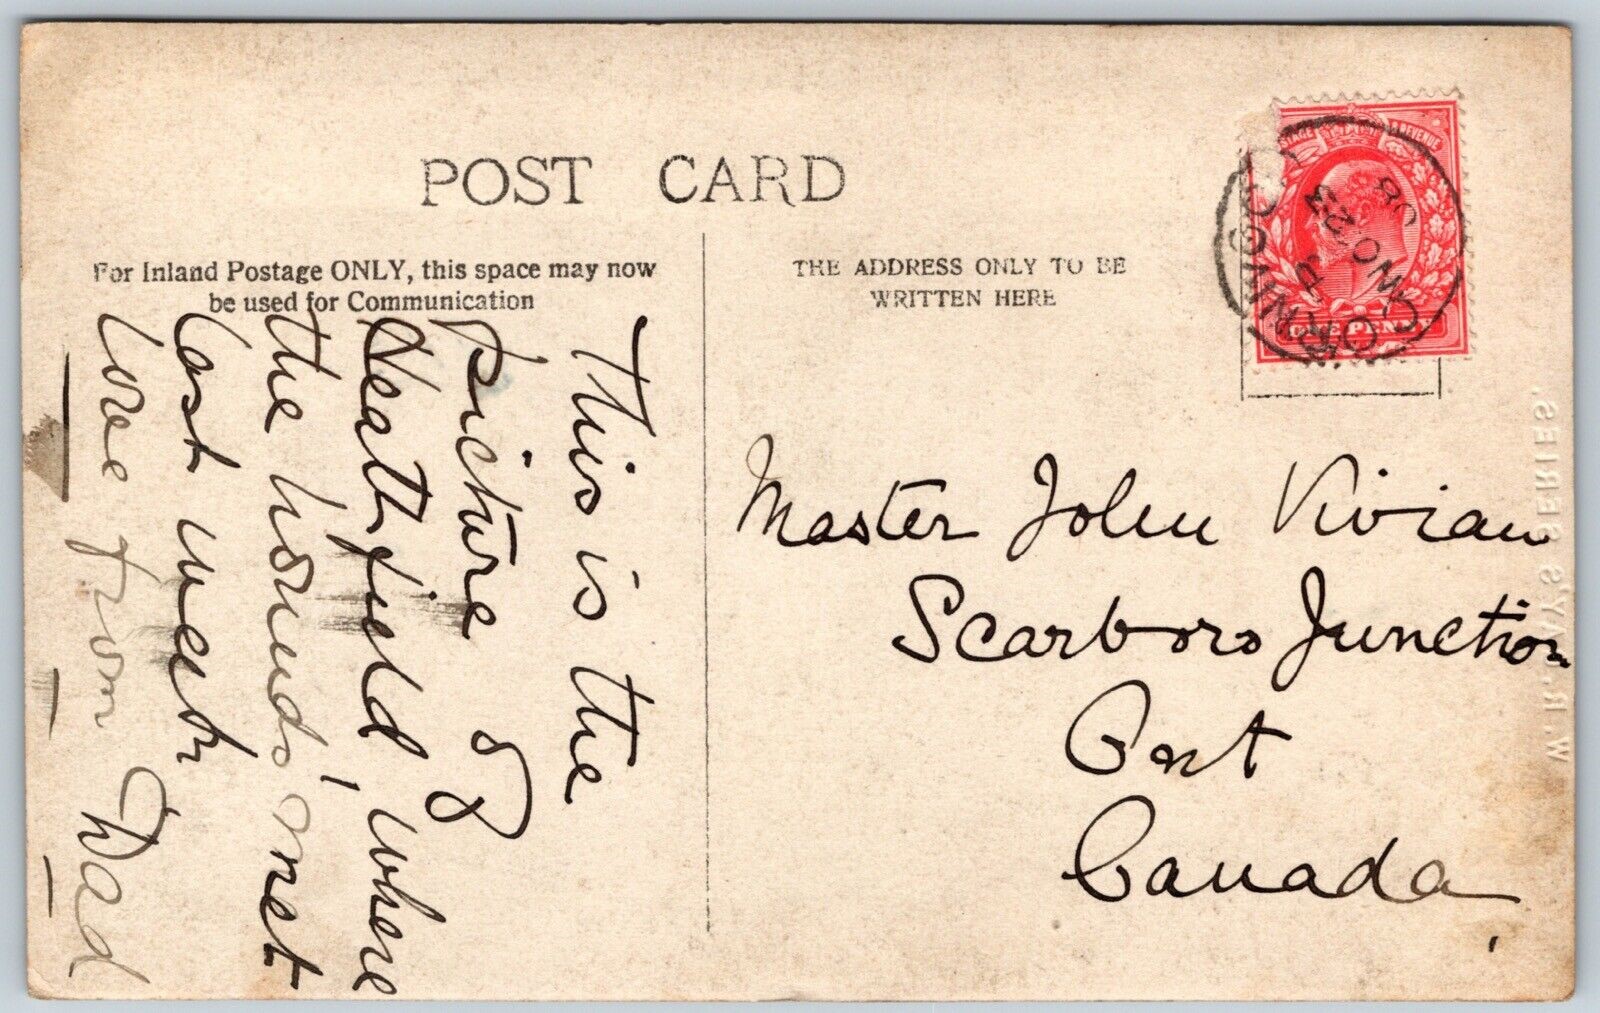 POST CARD
For Inland Postage ONLY, this space may now
be used for Communication
THE ADDRESS ONLY TO BE
WRITTEN HERE
This is the
picture of
Heathfield, where
the hounds' met
last week
Love from Dad
POSTAGE & REVENUE
ONE PENNY
CORNWOOD
MO 23
08
Master John Vivian
Scarboro Junction
Ont
Canada
W.R.GAY'S SERIES.